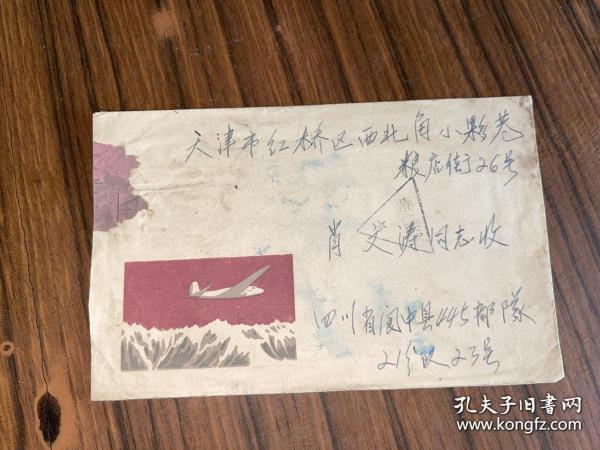 天津市红桥区西北角小夥巷
粮店街26号
肖文涛同志收
四川省阆中县445部隊
21分队23号
孔夫子旧書网
www.kongfz.com